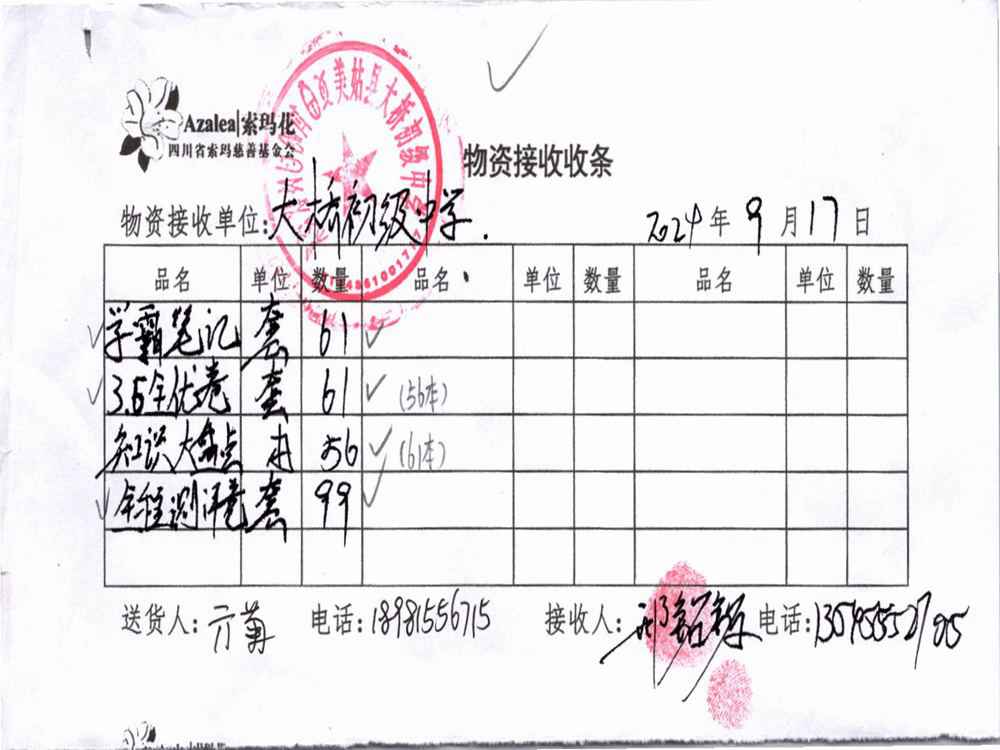 Azalea|索玛花
四川省索玛慈善基金会
美姑县大桥初级中学
物资接收收条
物资接收单位:大桥初级中学. 2024年9月17日
品名 单位 数量 品名 单位 数量 品名 单位 数量
学霸笔记 套 61
3.5年优卷 套 61 (56本)
知识大盘点 本 56 (61本)
测评卷 套 99
送货人: 电话:18981556715 接收人: 电话: